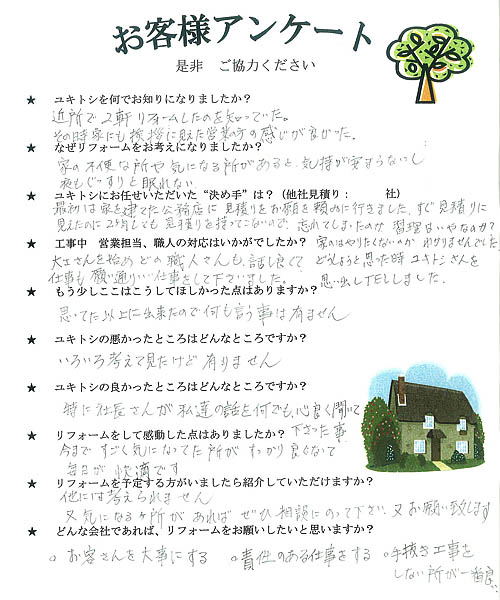 お客様アンケート
是非 ご協力ください
★ ユキトシを何でお知りになりましたか?
近所で2軒リフォームしたのを知っていた。
その時家にも挨拶に見えた営業の方の感じが良かった。
★ なぜリフォームをお考えになりましたか?
家の不便な所や気になる所があると、気持が安まらないし
夜もぐっすりと眠れない
★ ユキトシにお任せいただいた“決め手”は?(他社見積り: 社)
最初は家を建てた公務店に見積りをお願を頼みに行きました、すぐ見積りに
見えたのに2ヶ月しても見積りを持ってこないで、忘れてしまったのか 習理はいやなのか?
★ 工事中 営業担当、職人の対応はいかがでしたか?
家のはやりたくないのか わかりませんでした
大工さんを始めどの職人さんも、話し良くて どうしようと思った時 ユキトシさんを
仕事も願い通りいい仕事をして下さいました。 思い出しTELしました。
★ もう少しここはこうしてほしかった点はありますか?
思ってた以上に出来たので何も言う事は有ません
★ ユキトシの悪かったところはどんなところですか?
いろいろ考えて見たけど有りません
★ ユキトシの良かったところはどんなところですか?
特に社長さんが私達の話を何でも、心良く聞いて
下さった事
★ リフォームをして感動した点はありましたか?
今まですごく気になってた所がすっかり良くなって
毎日が快適です
★ リフォームを予定する方がいましたら紹介していただけますか?
他には考えられません
又気になるヶ所があればぜひ相談にのって下さい 又お願い致します
★ どんな会社であれば、リフォームをお願いしたいと思いますか?
○お客さんを大事にする ○責任のある仕事をする ○手抜き工事を
しない所が一番良い